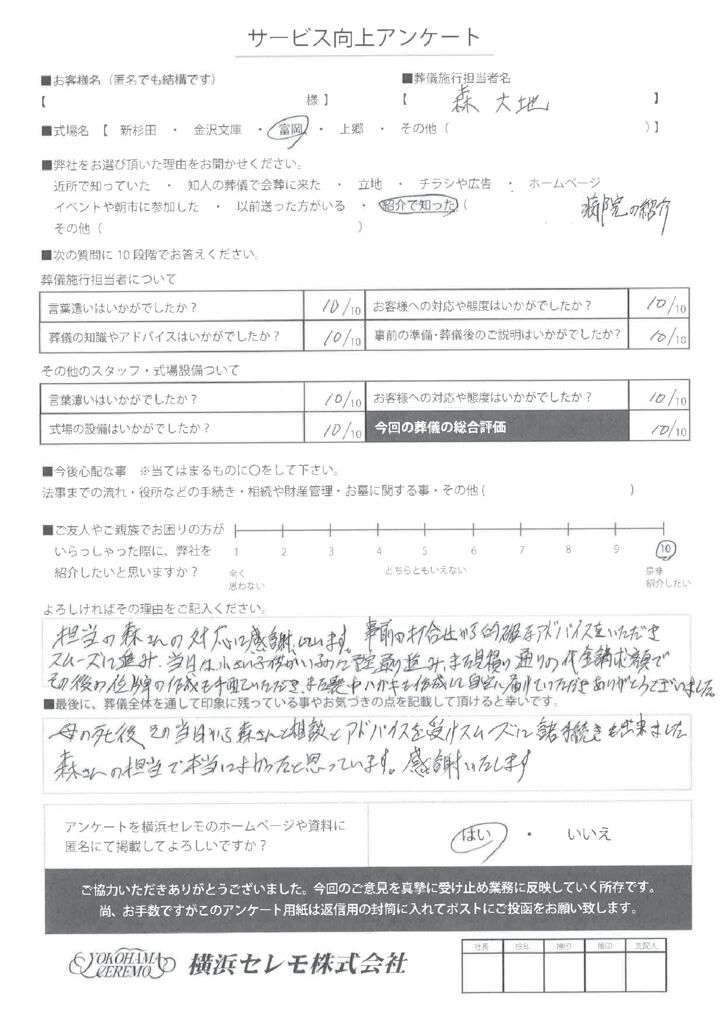 サービス向上アンケート
■お客様名（匿名でも結構です）
【 様】
■葬儀施行担当者名
【 森 大地 】
■式場名【 新杉田 ・ 金沢文庫 ・ 富岡 ・ 上郷 ・ その他（ ）】
■弊社をお選び頂いた理由をお聞かせください。
近所で知っていた ・ 知人の葬儀で会葬に来た ・ 立地 ・ チラシや広告 ・ ホームページ
イベントや朝市に参加した ・ 以前送った方がいる ・ 紹介で知った（ 病院の紹介
その他（ ）
■次の質問に10段階でお答えください。
葬儀施行担当者について
言葉遣いはいかがでしたか？ 10/10 お客様への対応や態度はいかがでしたか？ 10/10
葬儀の知識やアドバイスはいかがでしたか？ 10/10 事前の準備・葬儀後のご説明はいかがでしたか？ 10/10
その他のスタッフ・式場設備ついて
言葉遣いはいかがでしたか？ 10/10 お客様への対応や態度はいかがでしたか？ 10/10
式場の設備はいかがでしたか？ 10/10 今回の葬儀の総合評価 10/10
■今後心配な事 ※当てはまるものに〇をして下さい。
法事までの流れ・役所などの手続き・相続や財産管理・お墓に関する事・その他（ ）
■ご友人やご親族でお困りの方が
いらっしゃった際に、弊社を
紹介したいと思いますか？
1 2 3 4 5 6 7 8 9 10
全く
思わない
どちらともいえない
是非
紹介したい
よろしければその理由をご記入ください。
担当の森さんの対応に感謝しています。事前の打合せから的確なアドバイスをいただき
スムーズに進み、当日は小さい子供がいるので 進み、また見積り通りの代金請求額で
その後の位牌の作成も手配していただき、また喪中ハガキも作成して自宅に届けていただきありがとうございました。
■最後に、葬儀全体を通して印象に残っている事やお気づきの点を記載して頂けると幸いです。
母の死後、その当日から森さんと相談とアドバイスを受けスムーズに諸手続きも出来ました
森さんの担当で本当によかったと思っています。感謝いたします
アンケートを横浜セレモのホームページや資料に
匿名にて掲載してよろしいですか？
はい ・ いいえ
ご協力いただきありがとうございました。今回のご意見を真摯に受け止め業務に反映していく所存です。
尚、お手数ですがこのアンケート用紙は返信用の封筒に入れてポストにご投函をお願い致します。
YOKOHAMA
CEREMO
横浜セレモ株式会社
社長 検印 検印 支配人